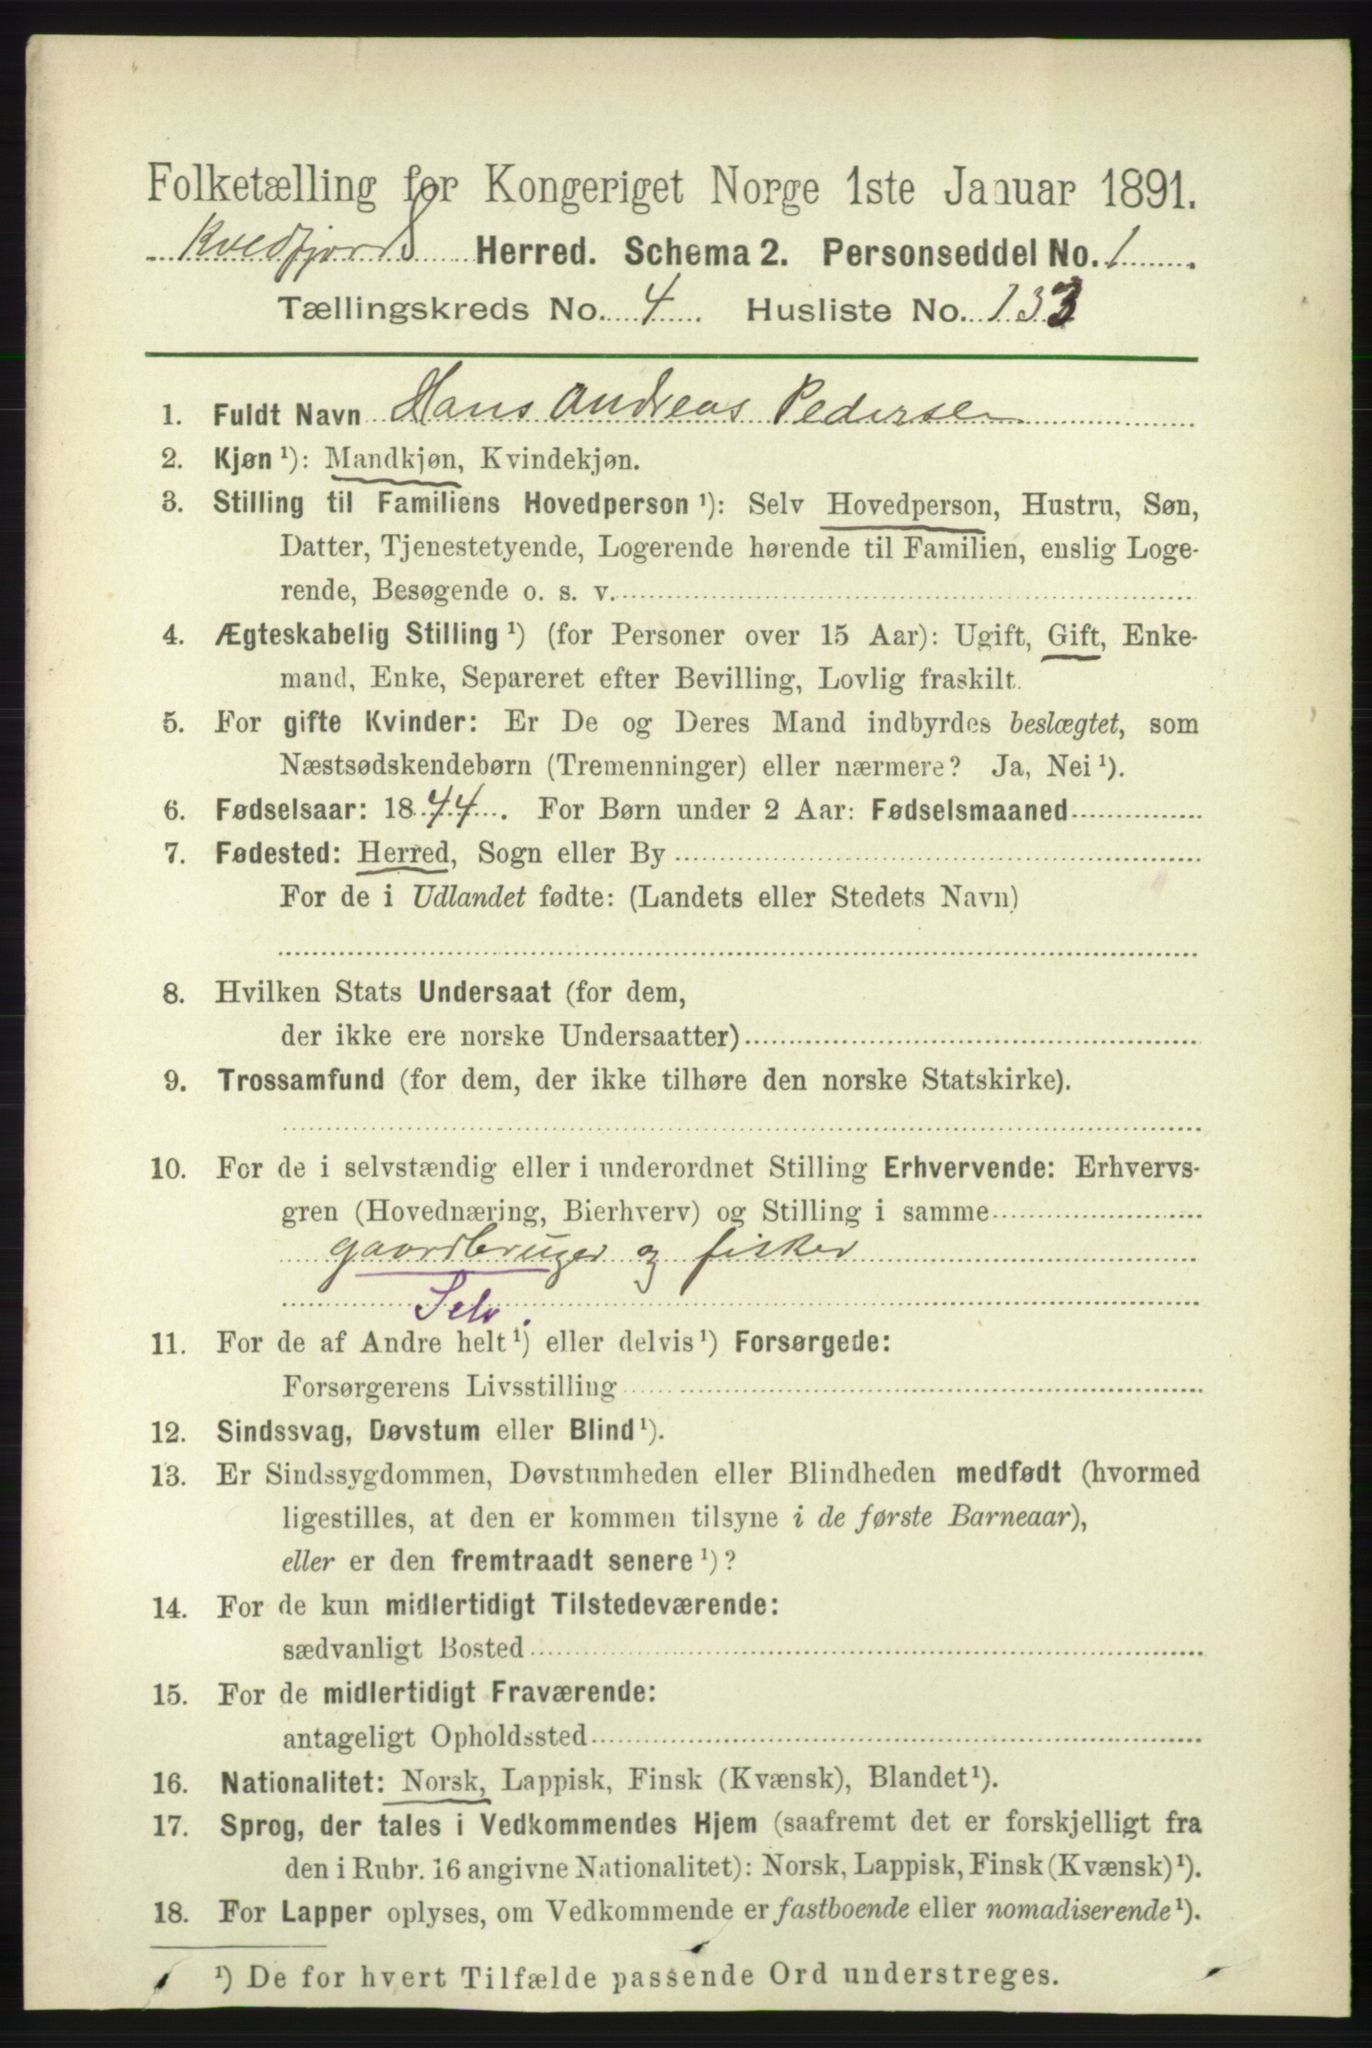 Folketælling for Kongeriget Norge 1ste Januar 1891.
Kvedfjord Herred. Schema 2. Personseddel No. 1
Tællingskreds No. 4 Husliste No. 133
1. Fuldt Navn Hans Andreas Pedersen
2. Kjøn ¹): Mandkjøn, Kvindekjøn.
3. Stilling til Familiens Hovedperson ¹): Selv Hovedperson, Hustru, Søn,
Datter, Tjenestetyende, Logerende hørende til Familien, enslig Loge-
rende, Besøgende o. s. v.
4. Ægteskabelig Stilling ¹) (for Personer over 15 Aar): Ugift, Gift, Enke-
mand, Enke, Separeret efter Bevilling, Lovlig fraskilt.
5. For gifte Kvinder: Er De og Deres Mand indbyrdes beslægtet, som
Næstsødskendebørn (Tremenninger) eller nærmere? Ja, Nei ¹).
6. Fødselsaar: 1844. For Børn under 2 Aar: Fødselsmaaned
7. Fødested: Herred, Sogn eller By
For de i Udlandet fødte: (Landets eller Stedets Navn)
8. Hvilken Stats Undersaat (for dem,
der ikke ere norske Undersaatter)
9. Trossamfund (for dem, der ikke tilhøre den norske Statskirke).
10. For de i selvstændig eller i underordnet Stilling Erhvervende: Erhvervs-
gren (Hovednæring, Bierhverv) og Stilling i samme
gaardbruger og fisker
Selv.
11. For de af Andre helt ¹) eller delvis ¹) Forsørgede:
Forsørgerens Livsstilling
12. Sindssvag, Døvstum eller Blind ¹).
13. Er Sindssygdommen, Døvstumheden eller Blindheden medfødt (hvormed
ligestilles, at den er kommen tilsyne i de første Barneaar),
eller er den fremtraadt senere ¹)?
14. For de kun midlertidigt Tilstedeværende:
sædvanligt Bosted
15. For de midlertidigt Fraværende:
antageligt Opholdssted
16. Nationalitet: Norsk, Lappisk, Finsk (Kvænsk), Blandet ¹).
17. Sprog, der tales i Vedkommendes Hjem (saafremt det er forskjelligt fra
den i Rubr. 16 angivne Nationalitet): Norsk, Lappisk, Finsk (Kvænsk) ¹).
18. For Lapper oplyses, om Vedkommende er fastboende eller nomadiserende ¹).
¹) De for hvert Tilfælde passende Ord understreges.